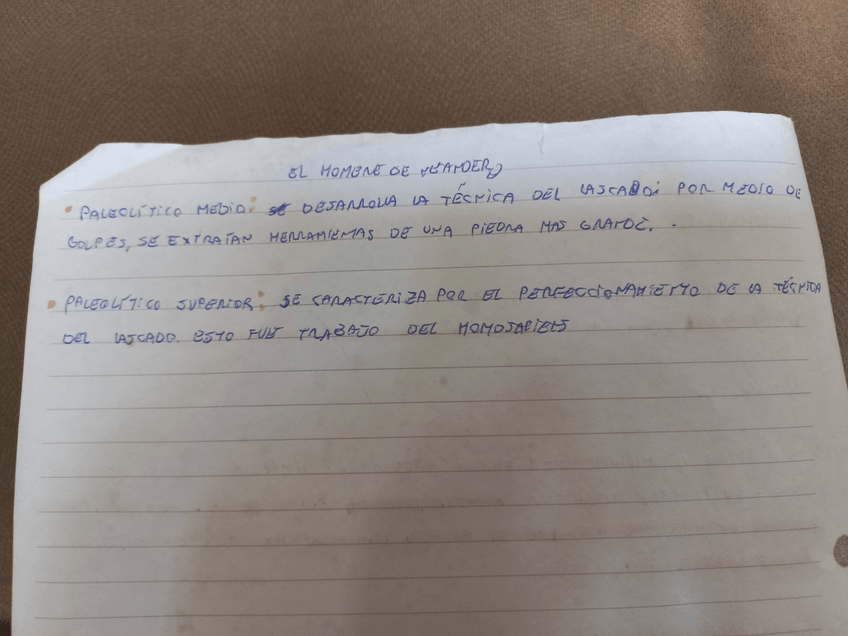 EL HOMBRE DE
• PALEOLÍTICO MEDIO: SE DESARROLLA LA TÉCNICA DEL LASCADO: POR MEDIO DE
GOLPES, SE EXTRAÍAN HERRAMIENTAS DE UNA PIEDRA MAS GRANDE.
• PALEOLÍTICO SUPERIOR: SE CARACTERIZA POR EL PERFECCIONAMIENTO DE LA TÉCNICA
DEL LASCADO. ESTO FUE TRABAJO DEL HOMOSAPIENS